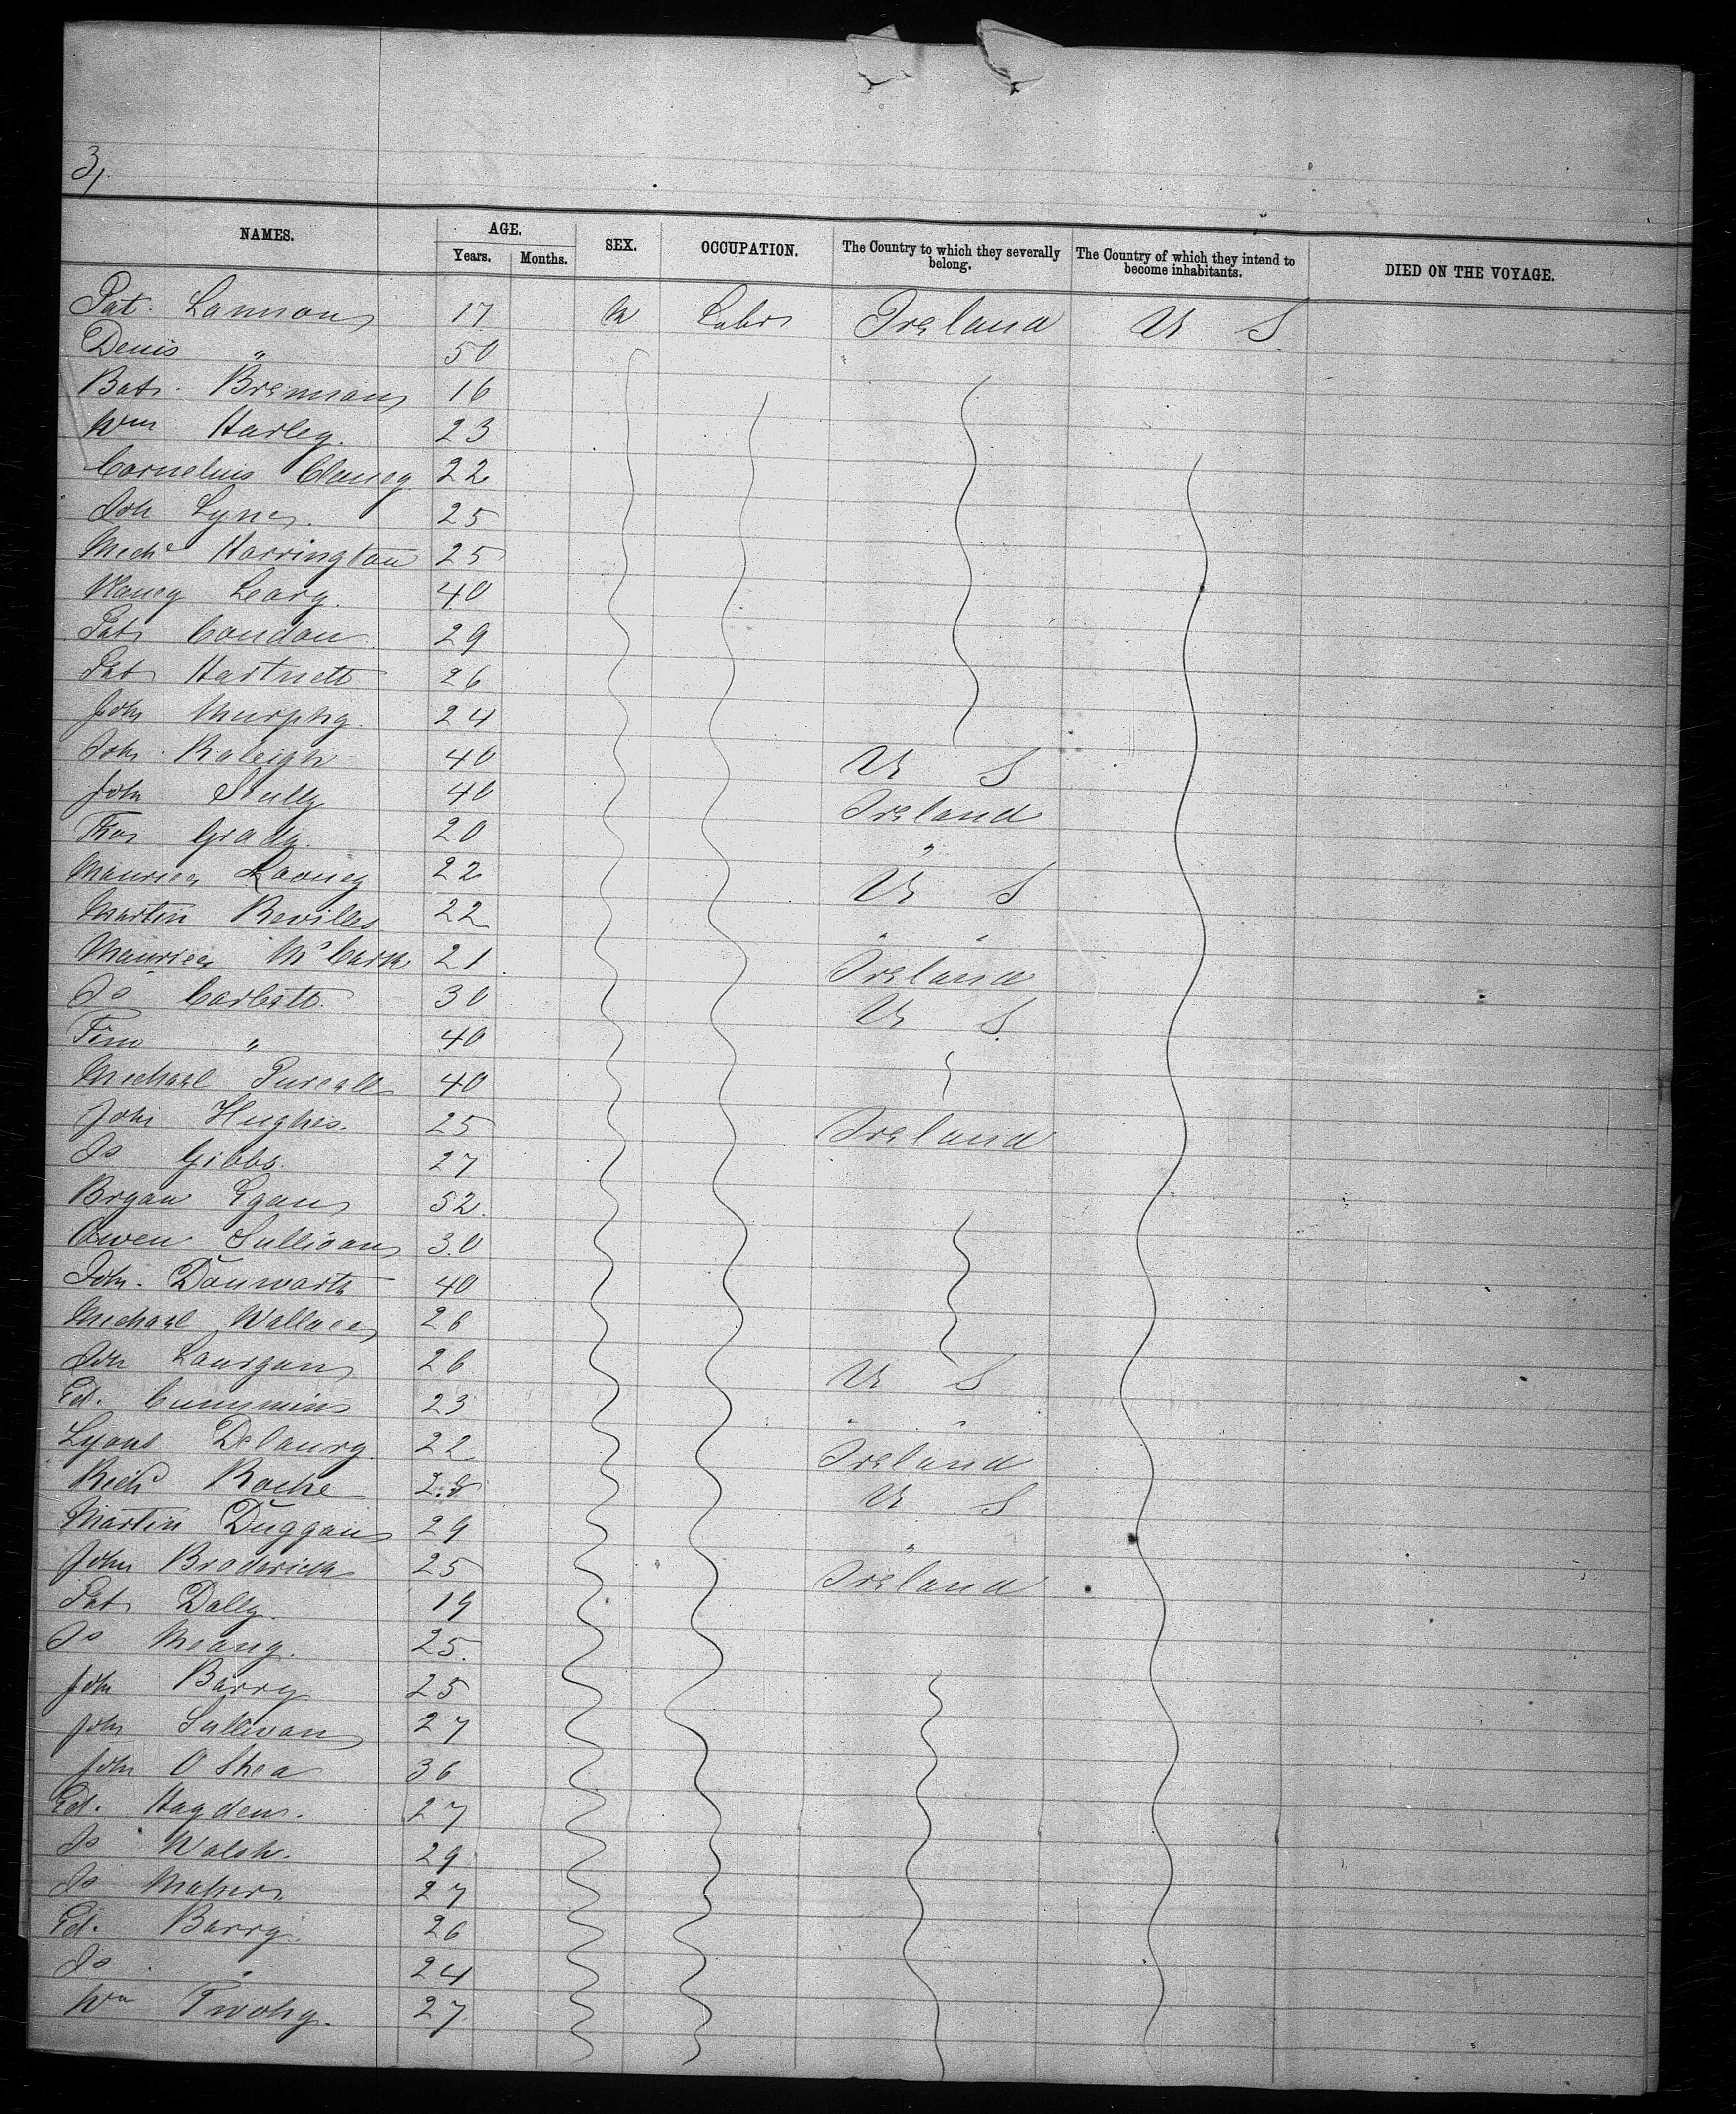 3,
NAMES. AGE. SEX. OCCUPATION. The Country to which they severally belong. The Country of which they intend to become inhabitants. DIED ON THE VOYAGE.
Years. Months.
Pat. Lannon 17 M Labr Ireland U S
Denis " 50
Patk. Brennan 16
Wm Harley. 23
Cornelius Clancy 22
Joh Lynes. 25
Michl Harrington 25
Leary. 40
Patk Condon 29
Patk Hartnett 26
John Murphy. 24
John Raleigh 40 U S
John Scully 40 Ireland
Thos Grady. 20 "
Maurice Looney 22 U S
Martin Bevilles 22 " "
Maurice McCarth 21 Ireland
Js Corbett. 30 U S
Tim " 40
Michael Purcell 40
John Hughes. 25 Ireland
Js Gibbs. 27
Bryan Egan 52
Owen Sullivan 30
John. Donworth 40
Michael Wallace 26
John 26 U S
Ed. Cummins 23 " "
Lyons Delaury 22 Ireland
Richd Roche 28 U S
Martin Duggan 29 "
John Broderick 25 Ireland
Patk Dally. 19
Js Meany. 25.
John Barry 25
John Sullivan 27
John O Shea 36
Ed. Hayden. 27
Js Walsh. 29
Js Maher. 27
Ed. Barry. 26
Js " 24
Wm Twohy. 27